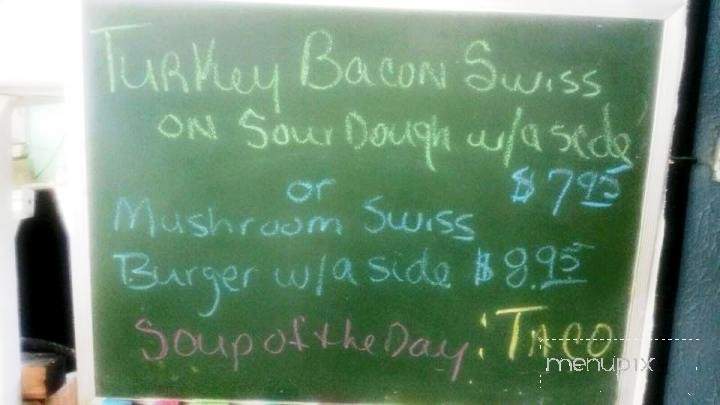 Turkey Bacon Swiss
on Sour Dough w/a side
$7.95
or
Mushroom Swiss
Burger w/a side $8.95
Soup of the Day: Taco
menupix